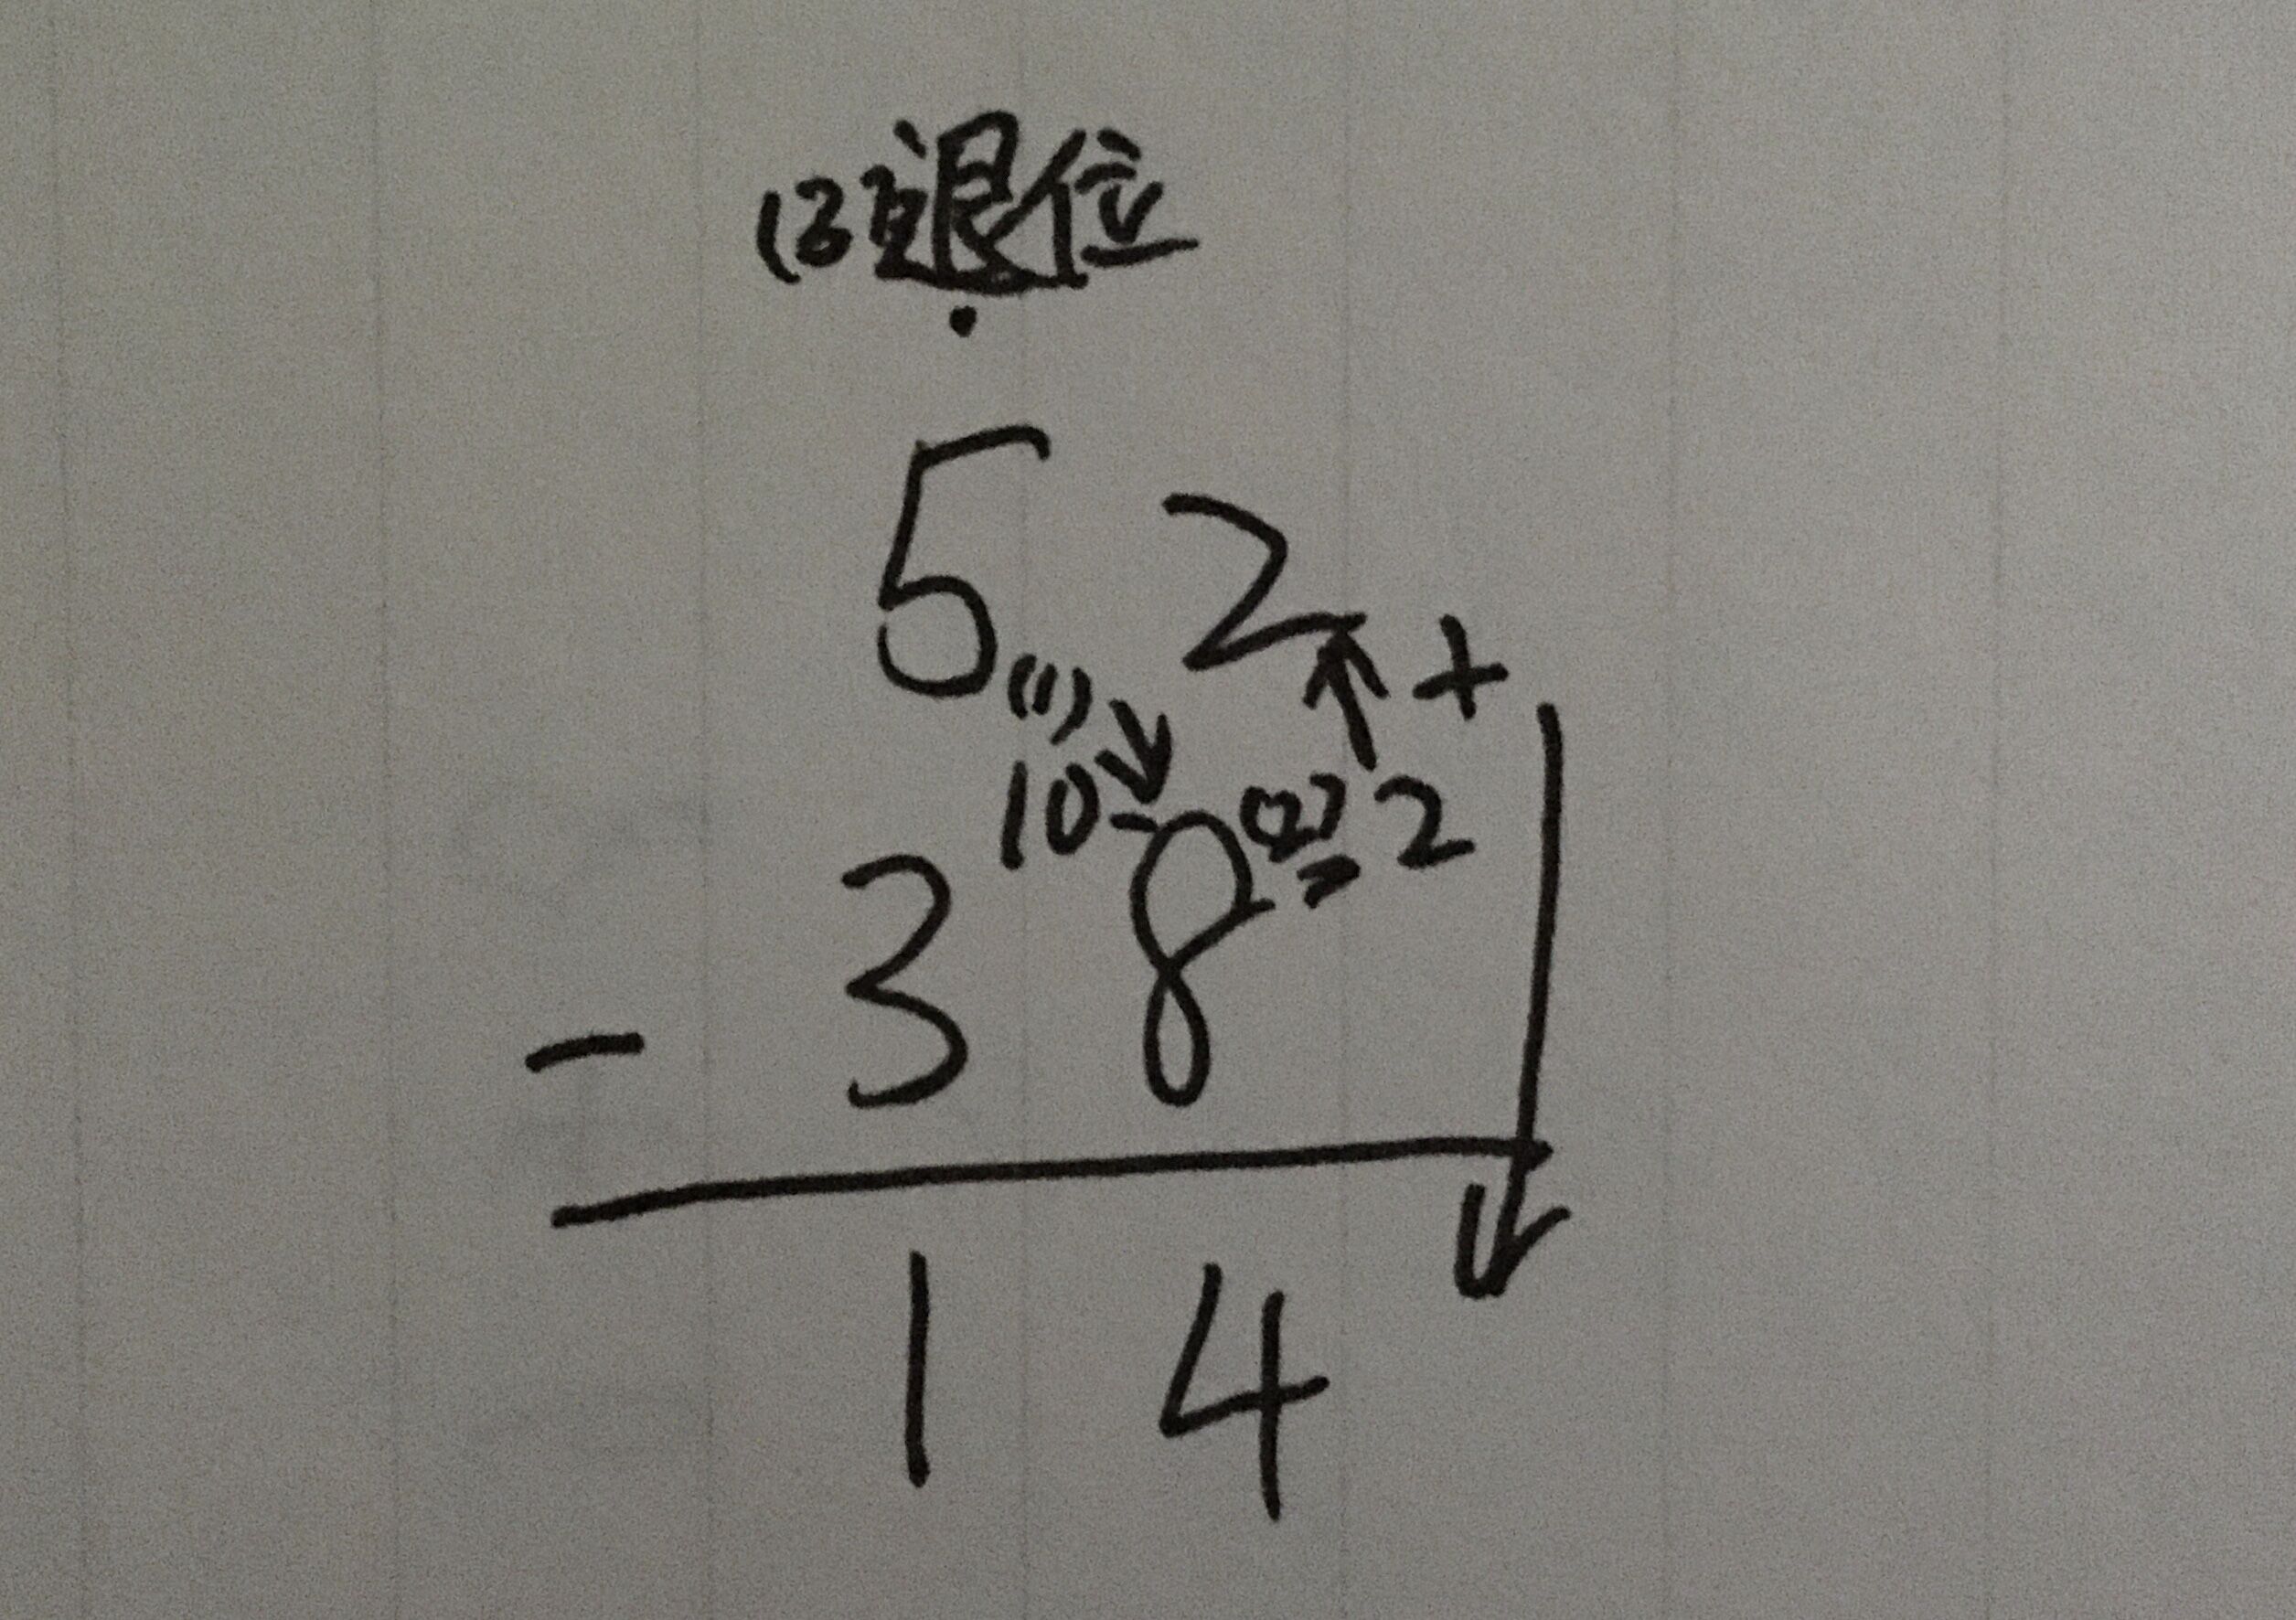 退位
·
5 2 +
(1)
10 - (2) = 2
- 3 8
1 4